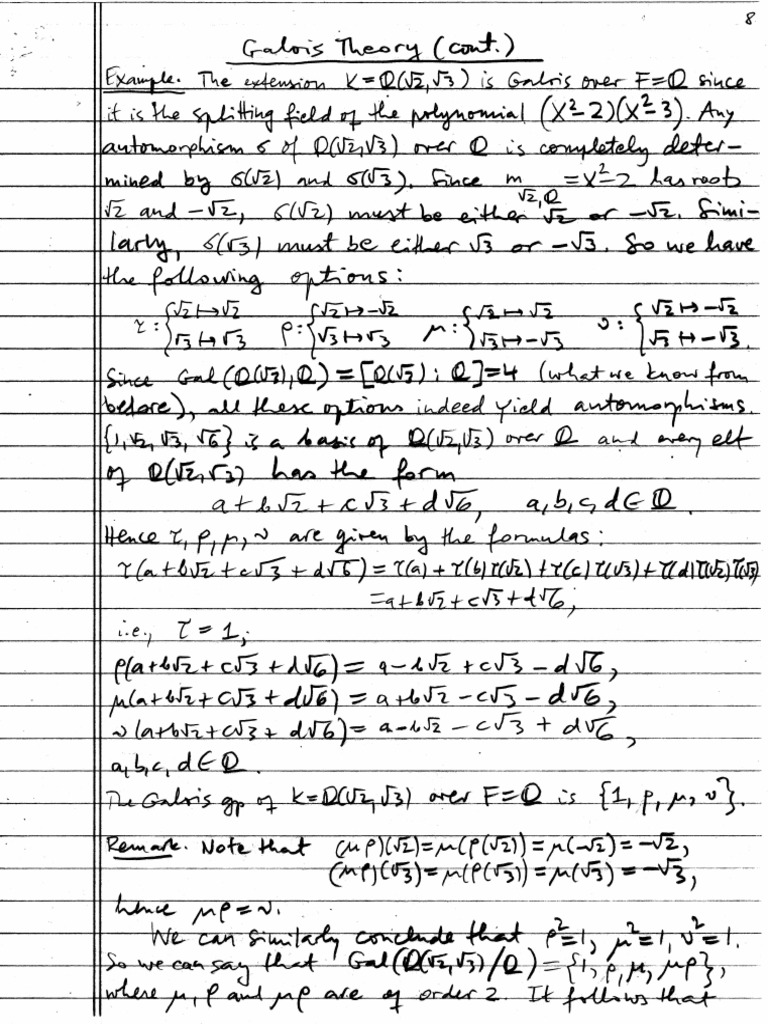 8
Galois Theory (cont.)
Example. The extension K=ℚ(√2,√3) is Galois over F=ℚ since
it is the splitting field of the polynomial (X²-2)(X²-3). Any
automorphism σ of ℚ(√2,√3) over ℚ is completely deter-
mined by σ(√2) and σ(√3). Since m_{√2,ℚ} = X²-2 has roots
√2 and -√2, σ(√2) must be either √2 or -√2. Simi-
larly, σ(√3) must be either √3 or -√3. So we have
the following options:
τ: {√2↦√2 ρ: {√2↦-√2 μ: {√2↦√2 ν: {√2↦-√2
√3↦√3 √3↦√3 √3↦-√3 √3↦-√3.
Since Gal(ℚ(√3),ℚ) = [ℚ(√3):ℚ]=4 (what we know from
before), all these options indeed yield automorphisms.
{1,√2,√3,√6} is a basis of ℚ(√2,√3) over ℚ and every elt
of ℚ(√2,√3) has the form
a+b√2+c√3+d√6, a,b,c,d∈ℚ.
Hence τ,ρ,μ,ν are given by the formulas:
τ(a+b√2+c√3+d√6)=τ(a)+τ(b)τ(√2)+τ(c)τ(√3)+τ(d)τ(√2)τ(√3)
=a+b√2+c√3+d√6,
i.e., τ=1;
ρ(a+b√2+c√3+d√6)=a-b√2+c√3-d√6,
μ(a+b√2+c√3+d√6)=a+b√2-c√3-d√6,
ν(a+b√2+c√3+d√6)=a-b√2-c√3+d√6,
a,b,c,d∈ℚ.
The Galois gp of K=ℚ(√2,√3) over F=ℚ is {1,ρ,μ,ν}.
Remark. Note that (μρ)(√2)=μ(ρ(√2))=μ(-√2)=-√2,
(μρ)(√3)=μ(ρ(√3))=μ(√3)=-√3,
hence μρ=ν.
We can similarly conclude that ρ²=1, μ²=1, ν²=1.
So we can say that Gal(ℚ(√2,√3)/ℚ)={1,ρ,μ,μρ},
where μ,ρ and μρ are of order 2. It follows that